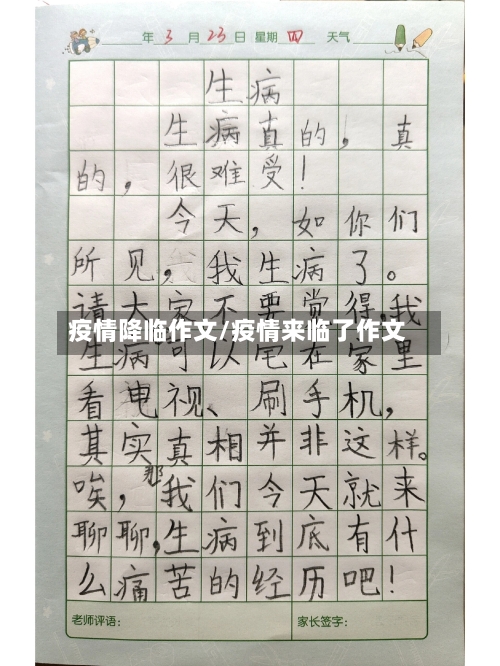 年 3 月 23 日 星期 四 天气
生病
生病真的，真
的，很难受！
今天，如你们
所见，我生病了。
请大家不要觉得，我
疫情降临作文/疫情来临了作文
生病可以宅在家里
看电视、刷手机，
其实真相并非这样。
唉，那我们今天就来
聊聊，生病到底有什
么痛苦的经历吧！
老师评语： 家长签字：